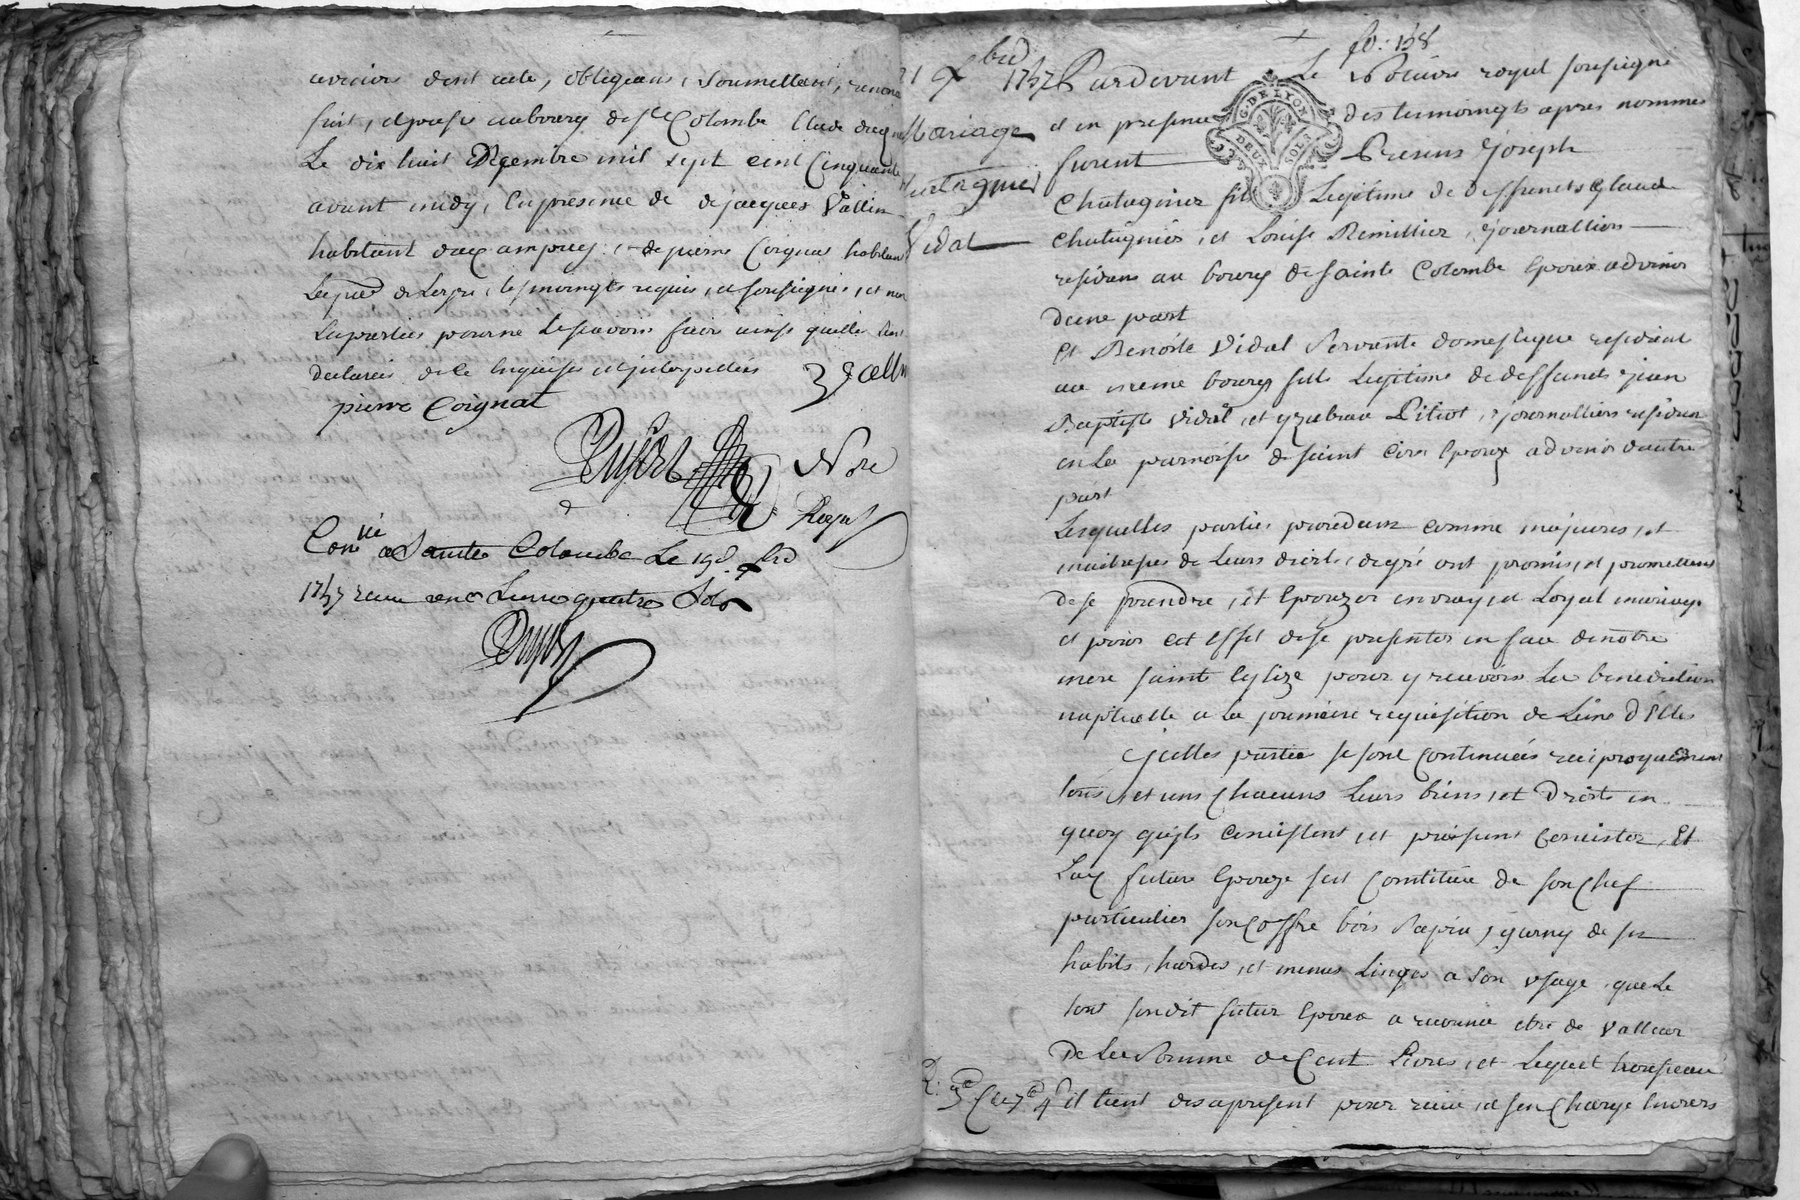 dont acte, obligeant, soumettant,
fait, et passé au bourg de Ste Colombe
Le dix huit Décembre mil sept cent Cinquante
avant midy, En presence de jacques Vallin
habitant et de pierre Coignat habitant
temoingts requis, et soussignés, et non
Les parties pour ne Le scavoir faire ainsi quelles ont
declarés de ce Enquises et interpellées
pierre Coignat
Nore
Royal
Conllé a Sainte Colombe Le
1757 recu une Livre quatre Sols
fo. 158
1757
Mariage
Chatagnier
Vidal
G. DE LYON
DEUX SOLS
Pardevant Le Notaire royal soussigné
et en presence des temoingts apres nommes
furent Presens Joseph
Chatagnier fils Legitime de deffuncts Claude
Chatagnier, et Louise Remillier, journalliers
residans au bourg de Sainte Colombe Epoux advenir
dune part
Et Benoite Vidal Servante domestique residant
au meme bourg fille Legitime de deffuncts jean
Baptiste Vidal, et yzabeau Pitiot, journalliers
en La parroisse de saint Epouze advenir dautre
part
Lesquelles parties procedant comme majeures, et
maitresses de Leurs droits, de gré ont promis, et promettent
de se prendre, et Epouzer en vray, et Loyal mariage
et pour cet effet de se presenter en face de notre
mere saint Eglize pour y recevoir La benediction
nuptialle a La premiere requisition de Lune d'Elles
partie se sont Continuées reciproquement
tous, et uns Chacuns Leurs biens, et Droits en
quoy quils Concistent, et puissent Concister, Et
Lad future Epouze sest Constituée de son Chef
particulier son Coffre bois Sapin, garny de ses
habits, hardes, et menus Linges a son usage, que Le
tout sondit futur Epoux a reconnu etre de valleur
De La Somme de Cent Livres, et Lequel trousseau
il tient des apresent pour recu, et sen Charge Envers